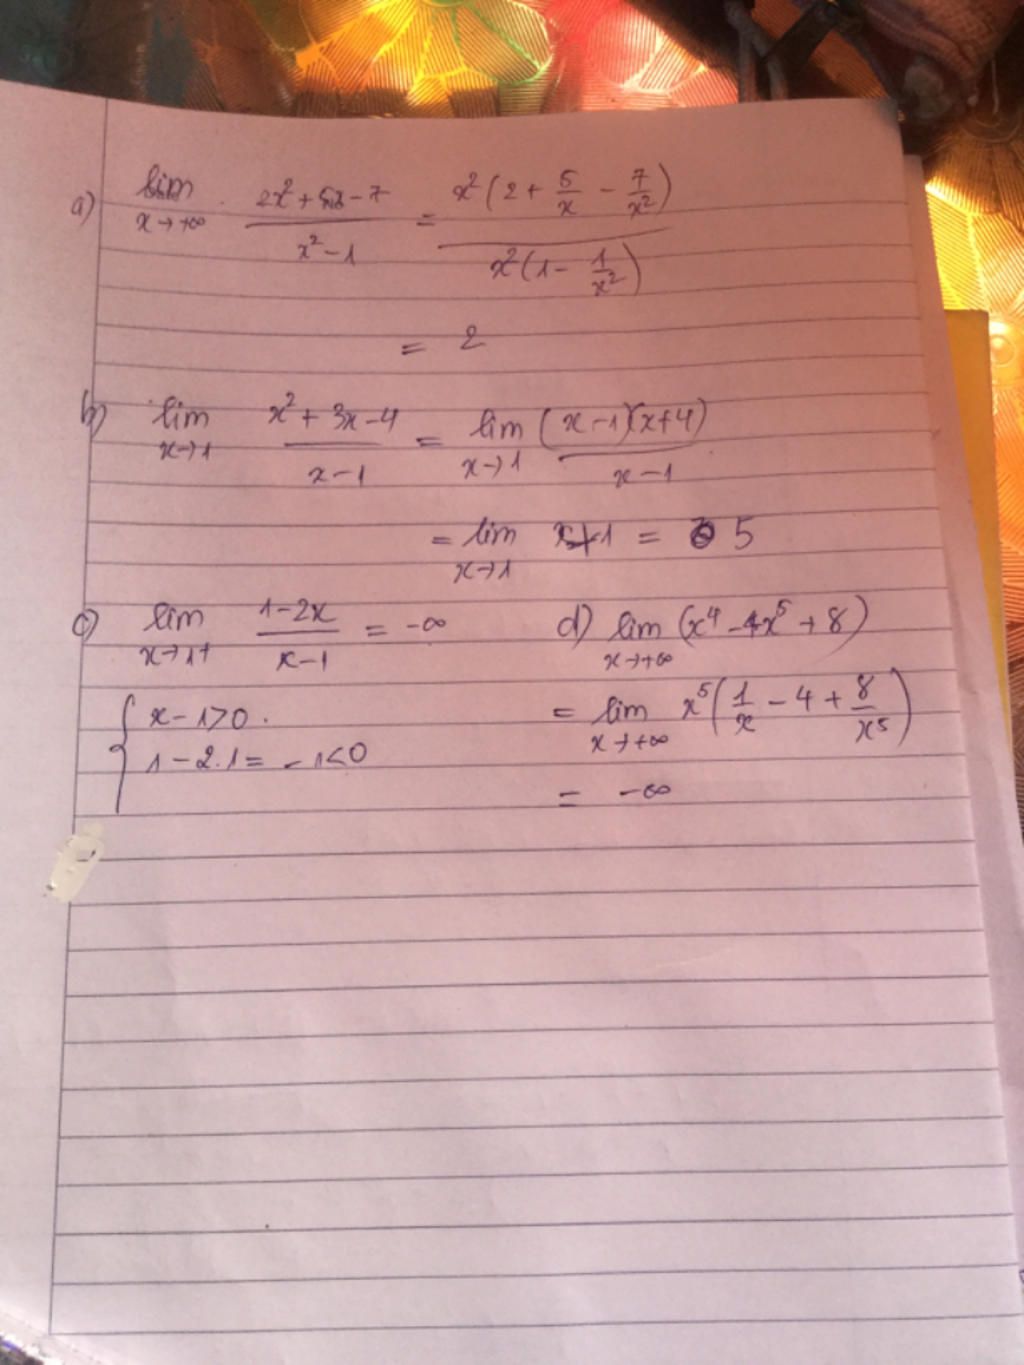 a) lim x→+∞ (2x² + 5x − 7)/(x² − 1) = x²(2 + 5/x − 7/x²)/x²(1 − 1/x²)
= 2
b) lim x→1 (x² + 3x − 4)/(x − 1) = lim x→1 (x − 1)(x + 4)/(x − 1)
= lim x→1 = 5
c) lim x→1⁺ (1 − 2x)/(x − 1) = −∞
{ x − 1 > 0.
1 − 2.1 = − 1 < 0
d) lim x→+∞ (x⁴ − 4x⁵ + 8)
= lim x→+∞ x⁵(1/x − 4 + 8/x⁵)
= −∞